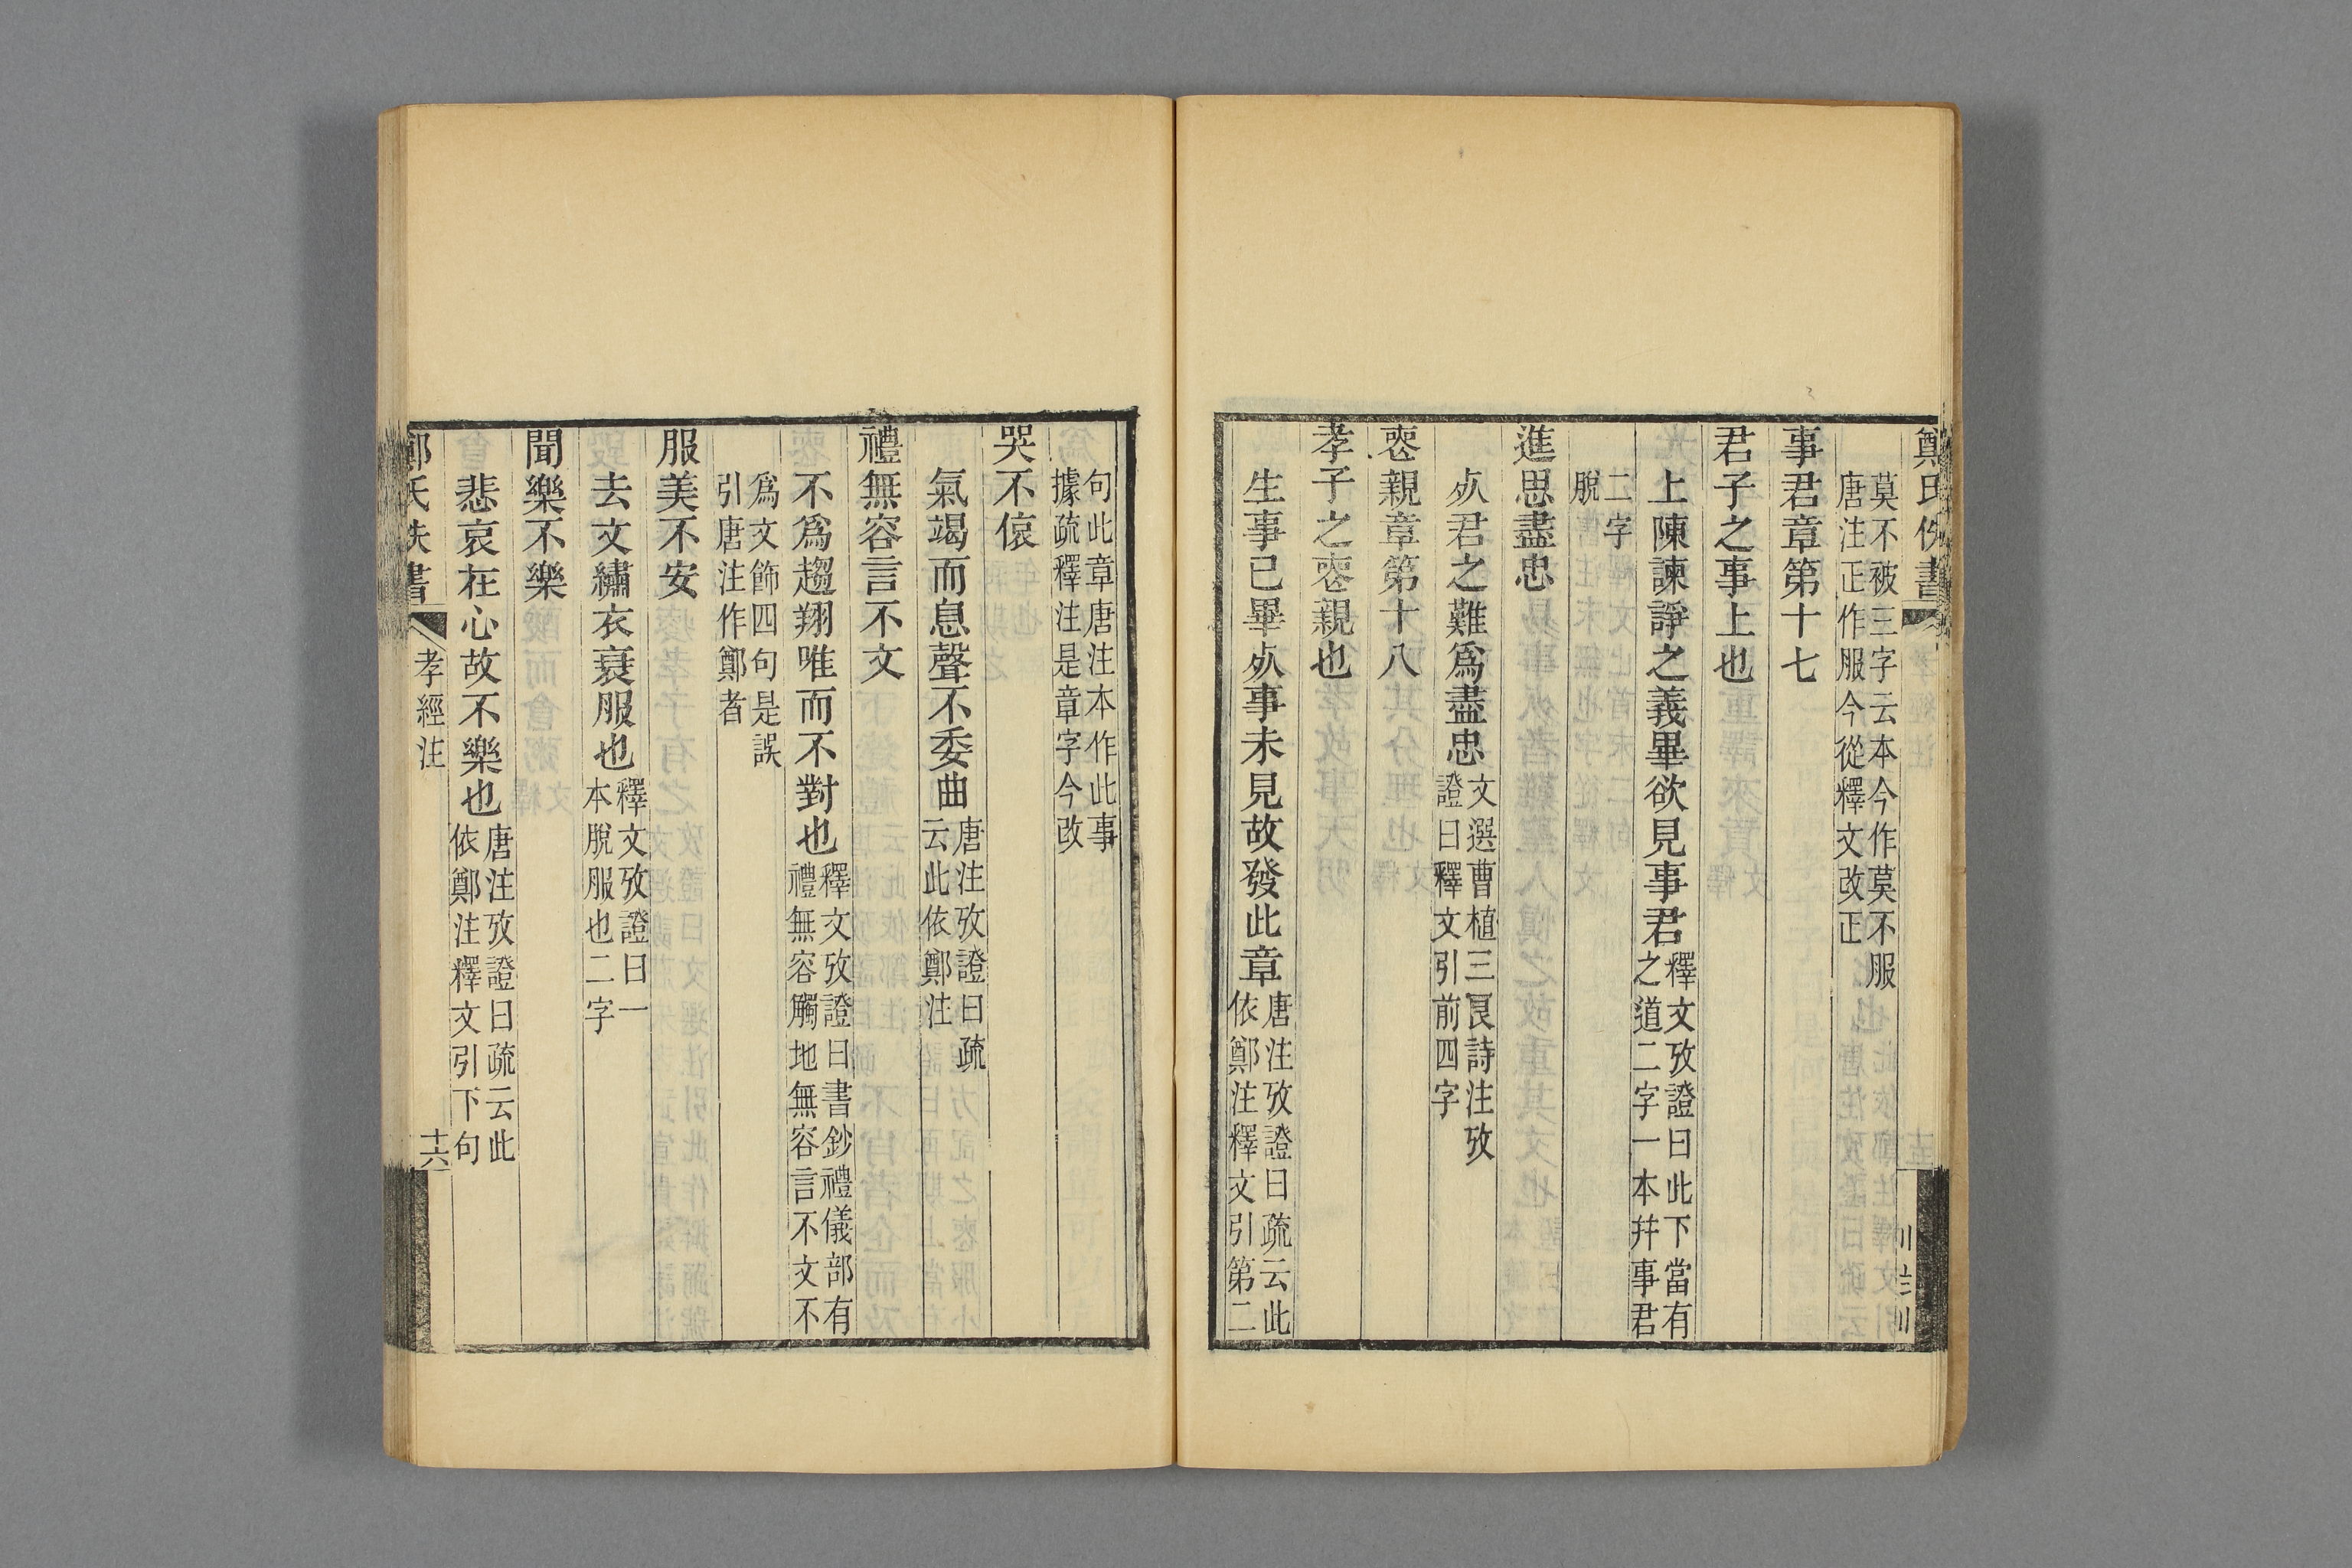 鄭氏佚書
莫不被三字云本今作莫不服
唐注正作服今從釋文改正
事君章第十七
君子之事上也
上陳諫諍之義畢欲見事君釋文攷證曰此下當有
之道二字一本幷事君
二字
脫
進思盡忠
𣦸君之難爲盡忠文選曹植三良詩注攷
證曰釋文引前四字
喪親章第十八
孝子之喪親也
生事已畢𣦸事未見故發此章唐注攷證曰疏云此
依鄭注釋文引第二
句此章唐注本作此事
據疏釋注是章字今改
哭不偯
氣竭而息聲不委曲唐注攷證曰疏
云此依鄭注
禮無容言不文
不爲趨翔唯而不對也釋文攷證曰書鈔禮儀部有
禮無容觸地無容言不文不
爲文飾四句是誤
引唐注作鄭者
服美不安
去文繡衣衰服也釋文攷證曰一
本脫服也二字
聞樂不樂
悲哀在心故不樂也唐注攷證曰疏云此
依鄭注釋文引下句
鄭氏佚書
孝經注
十六